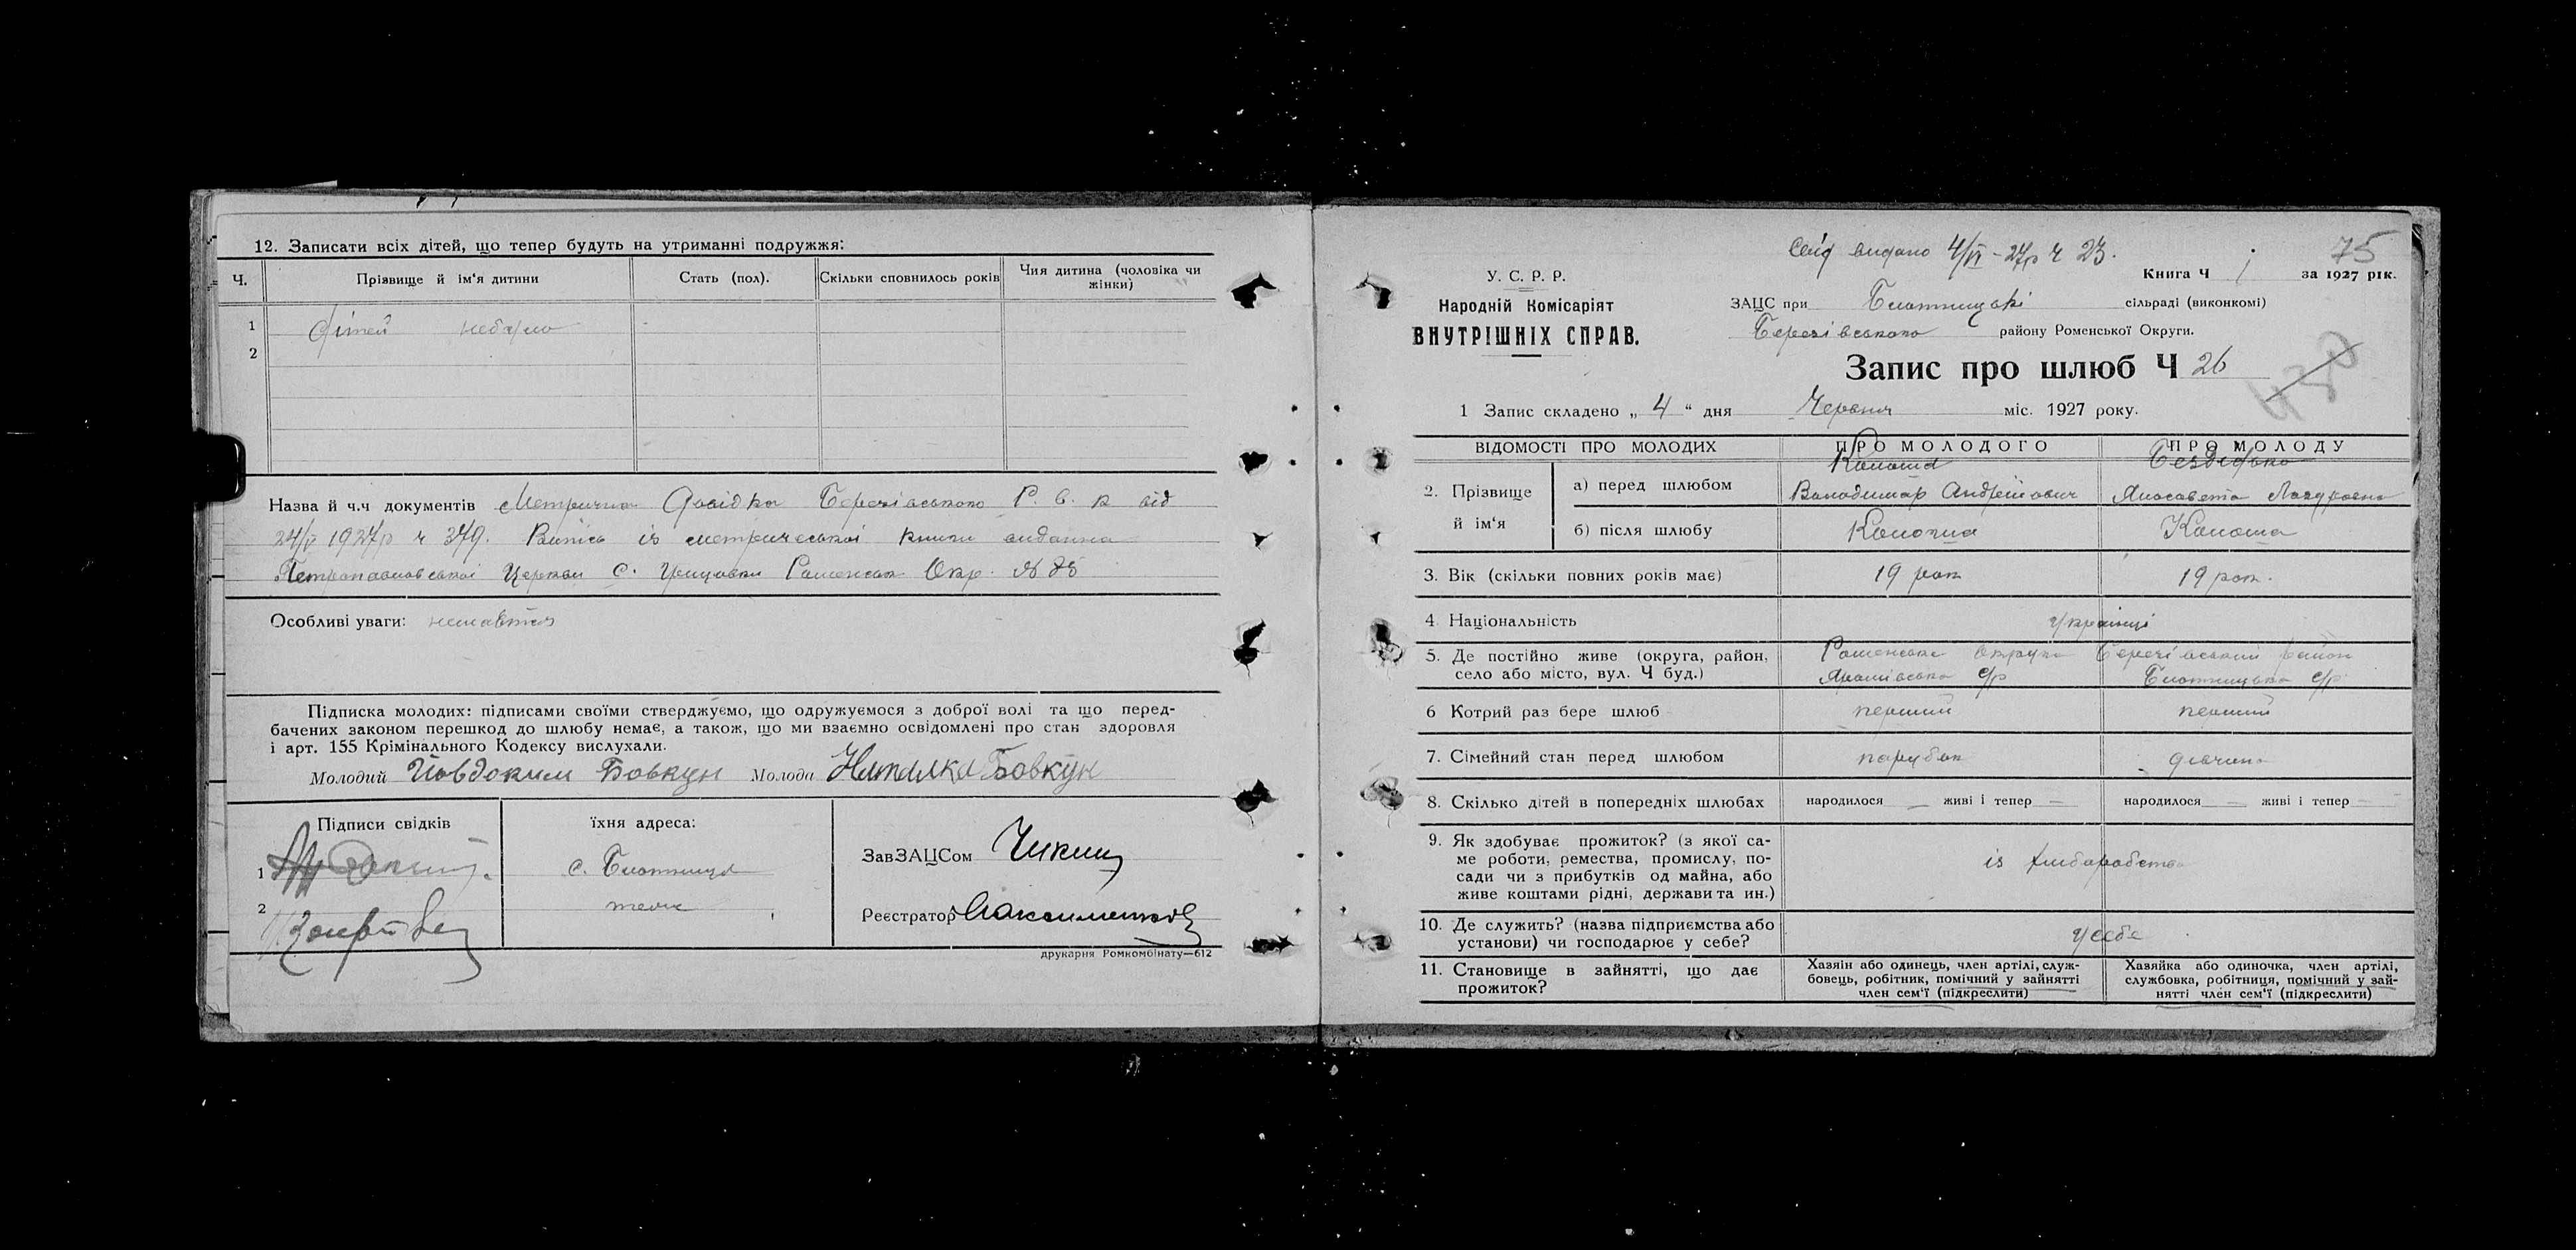 12. Записати всіх дітей, що тепер будуть на утриманні подружжя:
Ч. Прізвище й ім'я дитини Стать (пол). Скільки сповнилось років Чия дитина (чоловіка чи жінки)
1 Дітей небуло
2
Назва й ч.ч документів Метрична Довідка Березівського Р. В. К від
24/V 1927р ч 349. Випись із метрической книги выданна
Петропавловської Церкви С. Роменськ Окр. №
Особливі уваги:
Підписка молодих: підписами своїми стверджуємо, що одружуємося з доброї волі та що перед-
бачених законом перешкод до шлюбу немає, а також, що ми взаємно освідомлені про стан здоровля
і арт. 155 Крімінального Кодексу вислухали.
Молодий Йовдоким Бовкун Молода Наталка Бовкун
Підписи свідків їхня адреса:
1 с. Билотниця
2 теж
ЗавЗАЦСом
Реєстратор Максименко
друкарня Ромкомбінату—612
Свід видано 4/VI-27р ч 23.
75
У. С. Р. Р.
Народній Комісаріят
ВНУТРІШНІХ СПРАВ.
Книга Ч 1 за 1927 рік.
ЗАЦС при сільраді (виконкомі)
Березівського району Роменської Округи.
Запис про шлюб Ч 26
1 Запис складено „ 4 “ дня Червня міс. 1927 року.
ВІДОМОСТІ ПРО МОЛОДИХ ПРО МОЛОДОГО ПРО МОЛОДУ
2. Прізвище й ім'я
а) перед шлюбом Коноша Володимир Андрійович Бездідько
б) після шлюбу Коноша Коноша
3. Вік (скільки повних років має) 19 рок 19 рок.
4. Національність Українці
5. Де постійно живе (округа, район, Роменська Округа Березівський район
село або місто, вул. Ч буд.) с/р с/р
6 Котрий раз бере шлюб перший перший
7. Сімейний стан перед шлюбом парубок дівчина
8. Скілько дітей в попередніх шлюбах народилося — живі і тепер — народилося — живі і тепер —
9. Як здобуває прожиток? (з якої са-
ме роботи, ремества, промислу, по-
сади чи з прибутків од майна, або
живе коштами рідні, держави та ин.)
із хліборобства
10. Де служить? (назва підприємства або
установи) чи господарює у себе?
у себе
11. Становище в зайнятті, що дає
прожиток?
Хазяін або одинець, член артілі, служ-
бовець, робітник, помічний у зайнятті
член сем'ї (підкреслити)
Хазяйка або одиночка, член артілі,
службовка, робітниця, помічний у зай-
нятті член сем'ї (підкреслити)